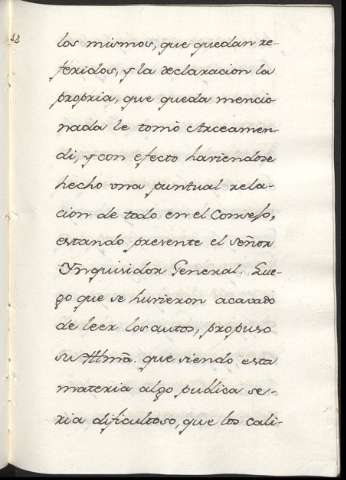 los mismos, que quedan re-
feridos, y la declaracion la
propria, que queda mencio-
nada le tomò Arceamen-
di, y con efecto haviendose
hecho una puntual rela-
cion de todo en el Consejo,
estando presente el Señor
Ynquisidor General. Lue-
go que se huvieron acavado
de leer los autos, propuso
su Illmã. que siendo esta
materia algo publica se-
ria dificultoso, que los cali-